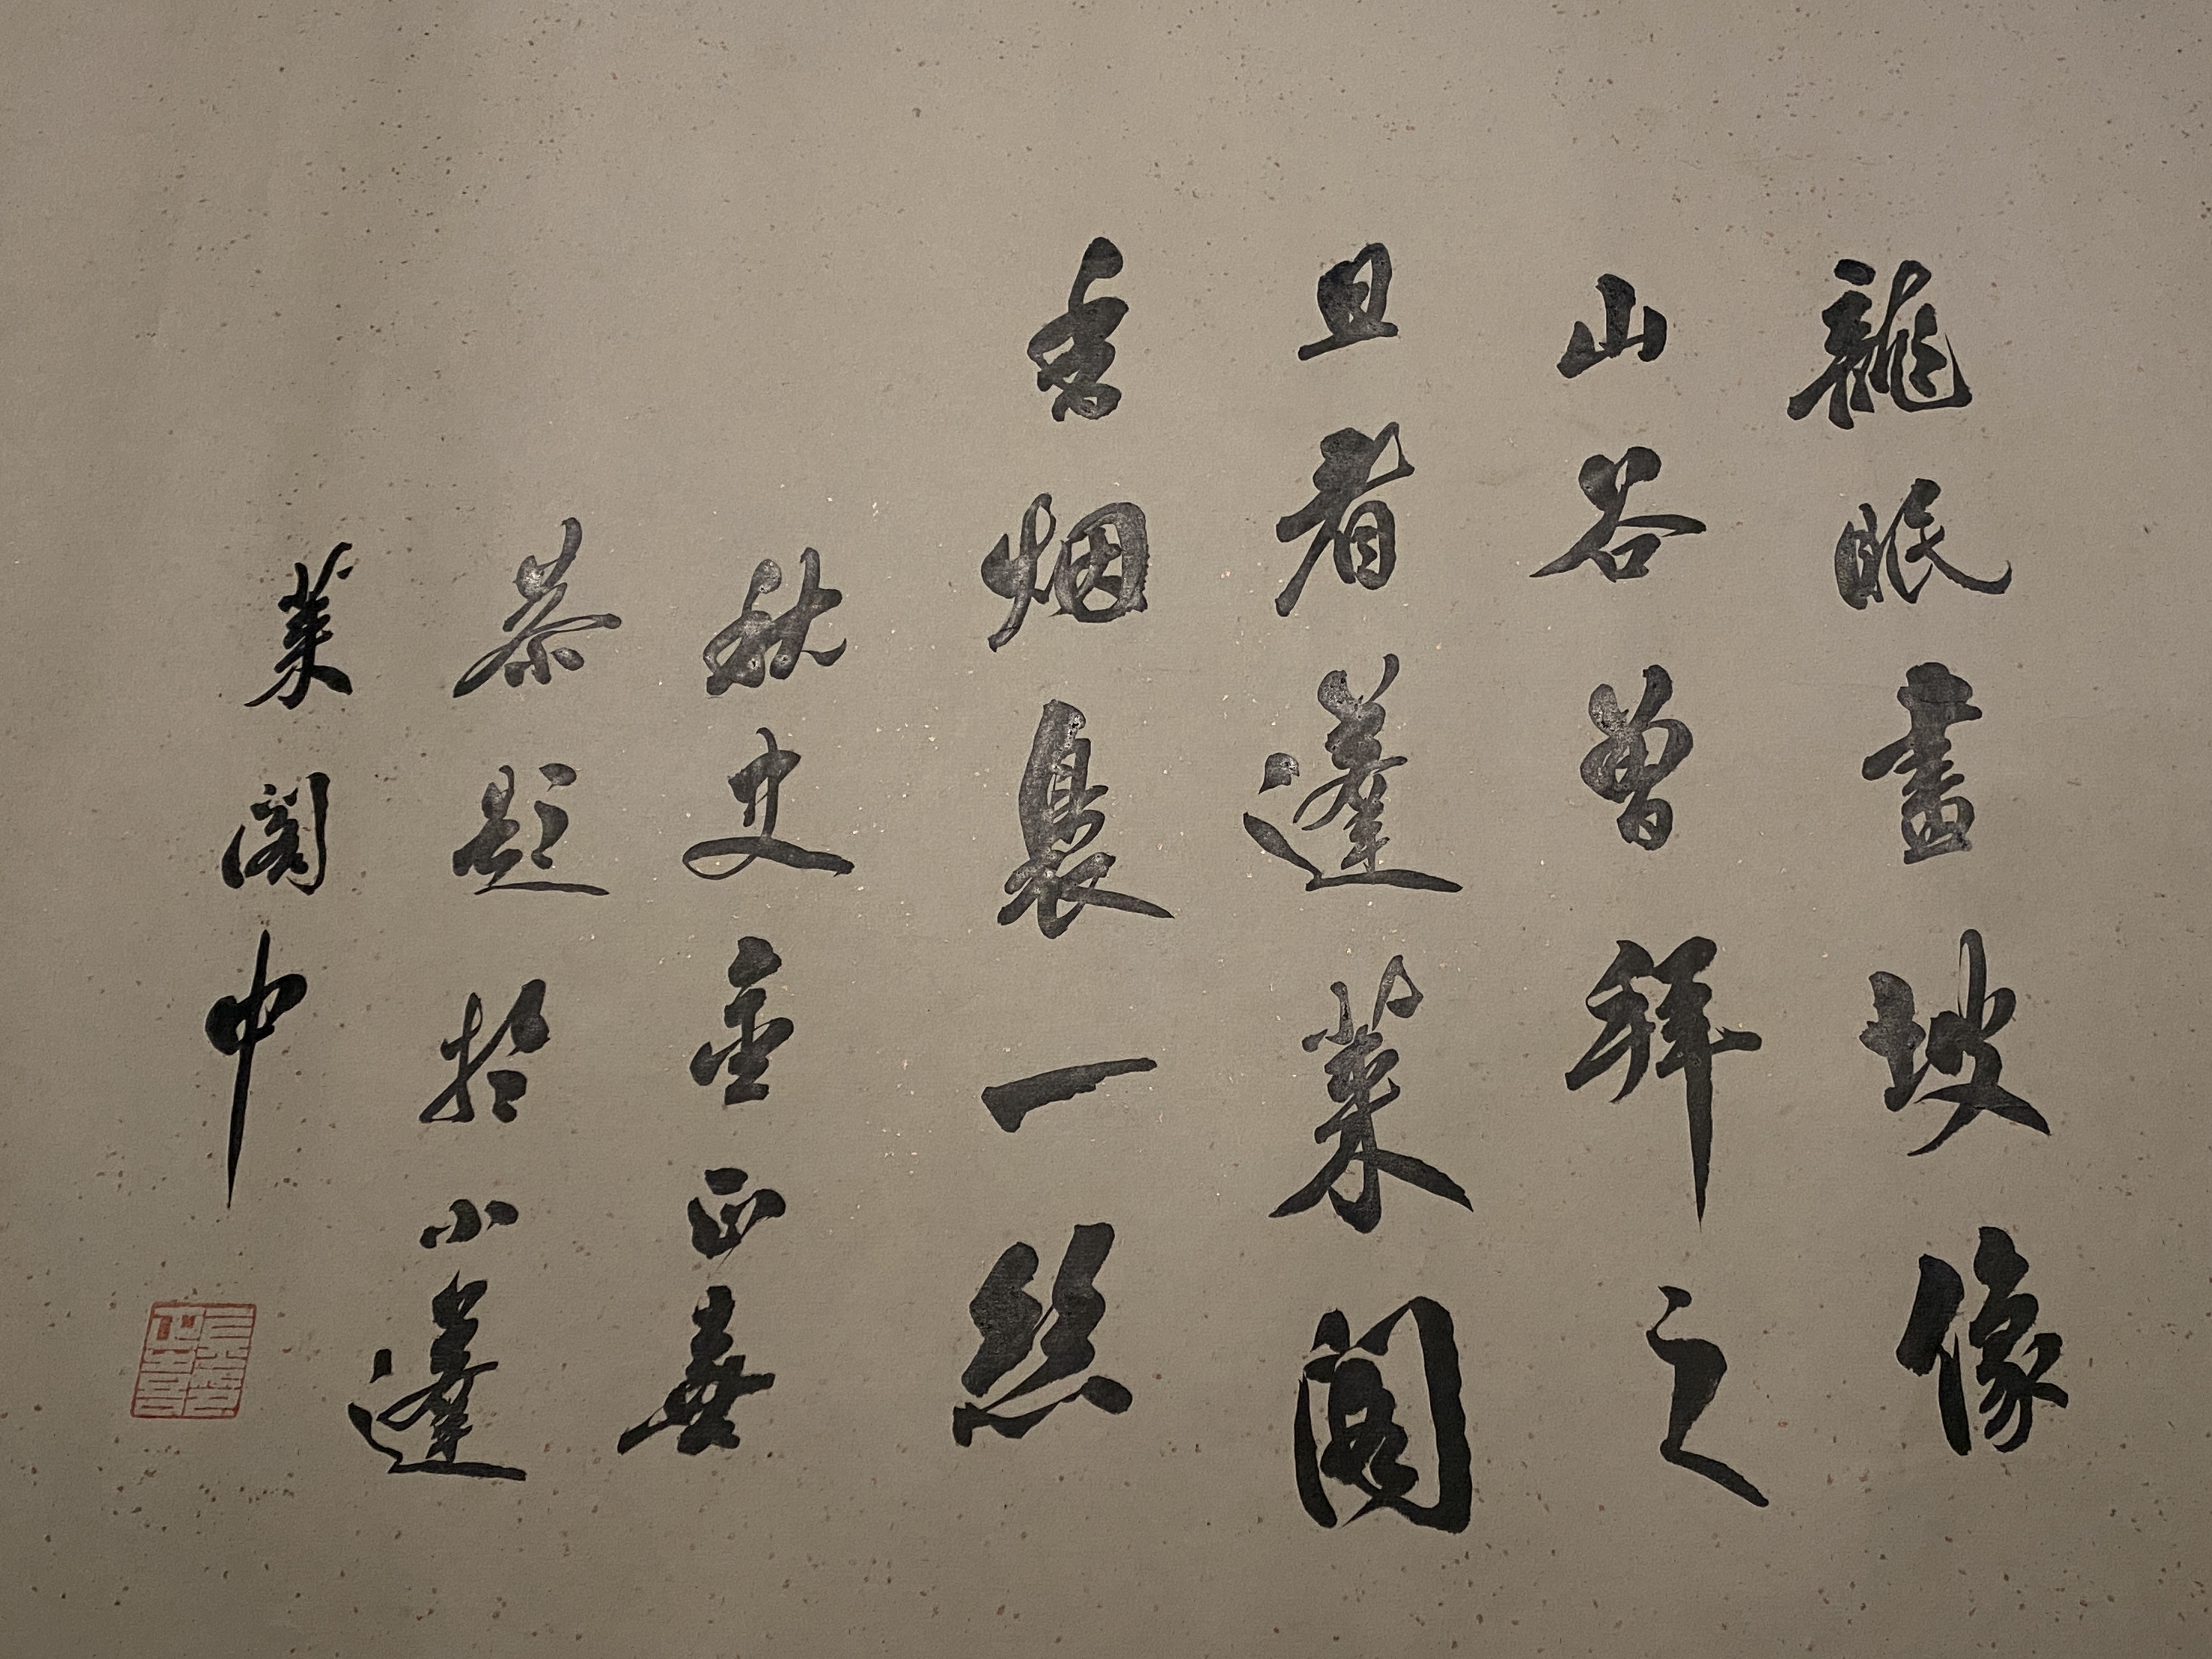 龍眠畫坡像
山谷曾拜之
且看蓬萊閣
香烟裊一絲
秋史金正喜
恭題於小蓬
萊閣中